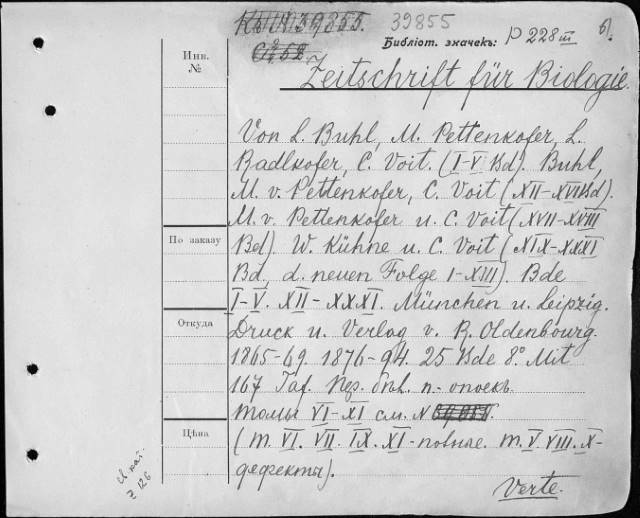 39855
Библіот. значекъ: P 228 III б).
Инв.
№
Zeitschrift für Biologie.
Von L. Buhl, M. Pettenkofer, L.
Radlkofer, C. Voit. (I-V Bd). Buhl,
M. v. Pettenkofer, C. Voit (XII-XVI Bd).
M. v. Pettenkofer u. C. Voit (XVII-XVIII
По заказу
Bd). W. Kühne u. C. Voit (XIX-XXXI
Bd, d. neuen Folge I-XIII). Bde
I-V. XII-XXXI. München u. Leipzig.
Откуда
Druck u. Verlag v. R. Oldenbourg.
1865-69. 1876-94. 25 Bde 8° Mit
167 Taf.
томы VI-XI см. №
Цѣна
(т. VI. VII. IX. XI- т. V. VIII. X-
дефекты).
Z 126
Verte.